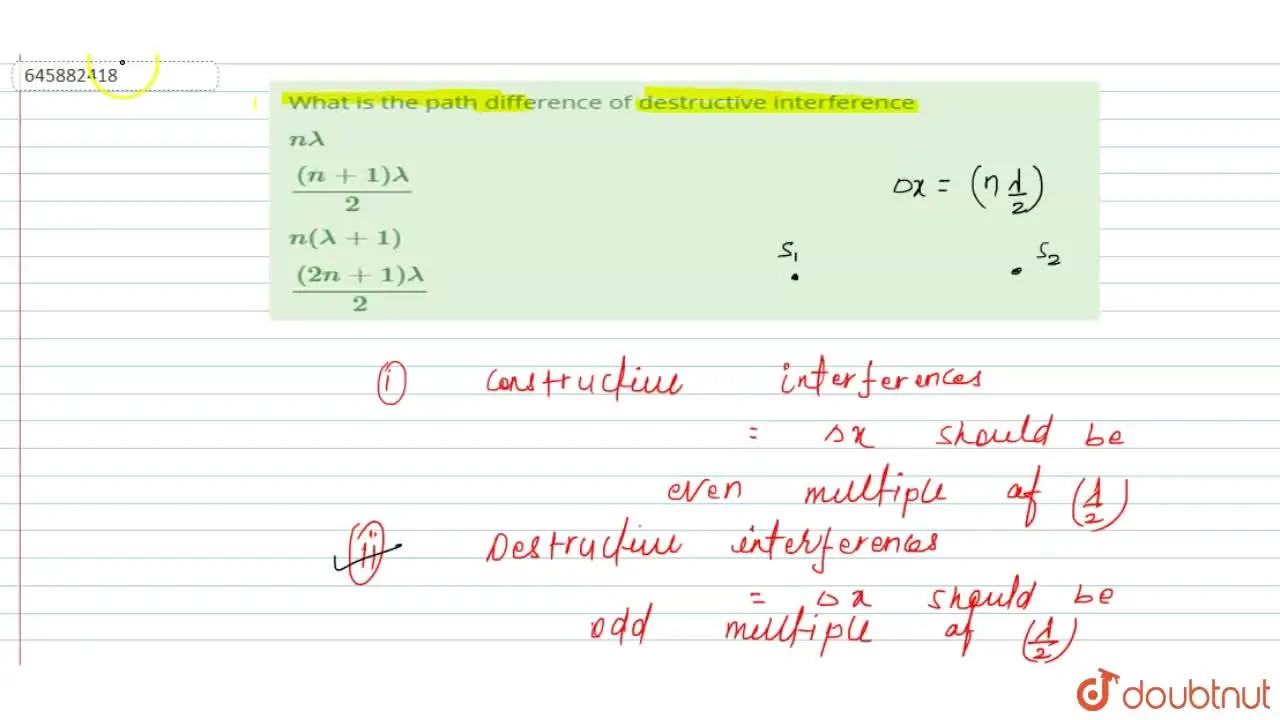 645882418
What is the path difference of destructive interference
nλ
(n + 1)λ
2
Δx = (n λ/2)
n(λ + 1)
S1
S2
(2n + 1)λ
2
i constructive interferences
= Δx should be
even multiple of (λ/2)
ii Destructive interferences
= Δx should be
odd multiple of (λ/2)
doubtnut